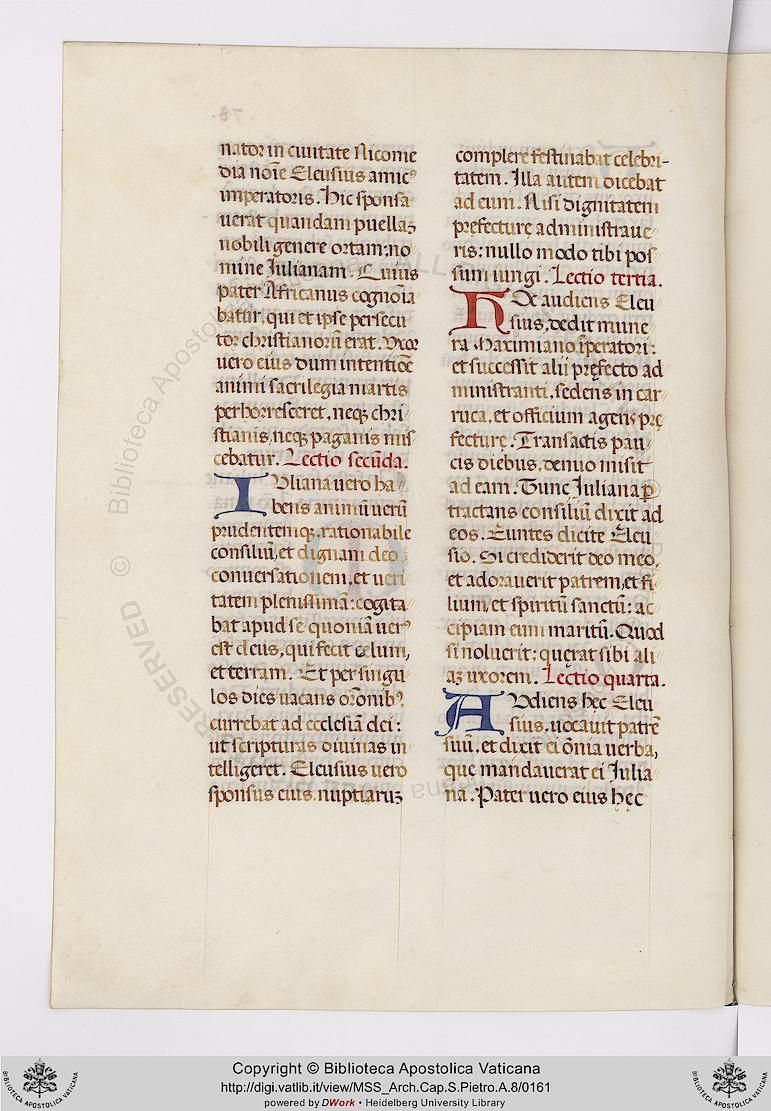 nator in ciuitate Nicome
dia noīe Eleusius amicꝰ
imperatoris. Hic sponsa
uerat quandam puellaꝫ
nobili genere ortam: no
mine Iulianam. Cuius
pater Africanus cognoīa
batur, qui et ipse persecu
tor christianorū erat. Vxor
uero eius dum intentiōe
animi sacrilegia martis
perhorresceret, neqꝫ chri
stianis, neqꝫ paganis mis
cebatur. Lectio secūda.
IVliana uero ha
bens animū uerū
prudentemqꝫ, rationabile
consiliū, et dignam deo
conuersationem, et ueri
tatem plenissimā: cogita
bat apud se quoniā uerꝰ
est deus, qui fecit celum,
et terram. Et per singu
los dies uacans orōnibꝰ,
currebat ad ecclesiā dei:
ut scripturas diuinas in
telligeret. Eleusius uero
sponsus eius, nuptiaruꝫ
complere festinabat celebri-
tatem. Illa autem dicebat
ad eum. Nisi dignitatem
prefecturę administraue
ris: nullo modo tibi pos
sum iungi. Lectio tertia.
HEc audiens Eleu
sius, dedit mune
ra Maximiano īperatori:
et successit alii pręfecto ad
ministranti, sedens in car
ruca, et officium agens prę
fecturę. Transactis pau
cis diebus, denuo misit
ad eam. Tunc Iuliana ꝑ
tractans consiliū dixit ad
eos. Euntes dicite Eleu
sio. Si crediderit deo meo,
et adorauerit patrem, et fi
lium, et spiritū sanctū: ac
cipiam eum maritū. Quod
si noluerit: querat sibi ali
aꝫ uxorem. Lectio quarta.
AVdiens hec Eleu
sius, uocauit patrē
suū, et dixit ei ōnia uerba,
quę mandauerat ei Iulia
na. Pater uero eius hęc
Copyright © Biblioteca Apostolica Vaticana
http://digi.vatlib.it/view/MSS_Arch.Cap.S.Pietro.A.8/0161
powered by DWork • Heidelberg University Library
BIBLIOTECA APOSTOLICA VATICANA
BIBLIOTECA APOSTOLICA VATICANA